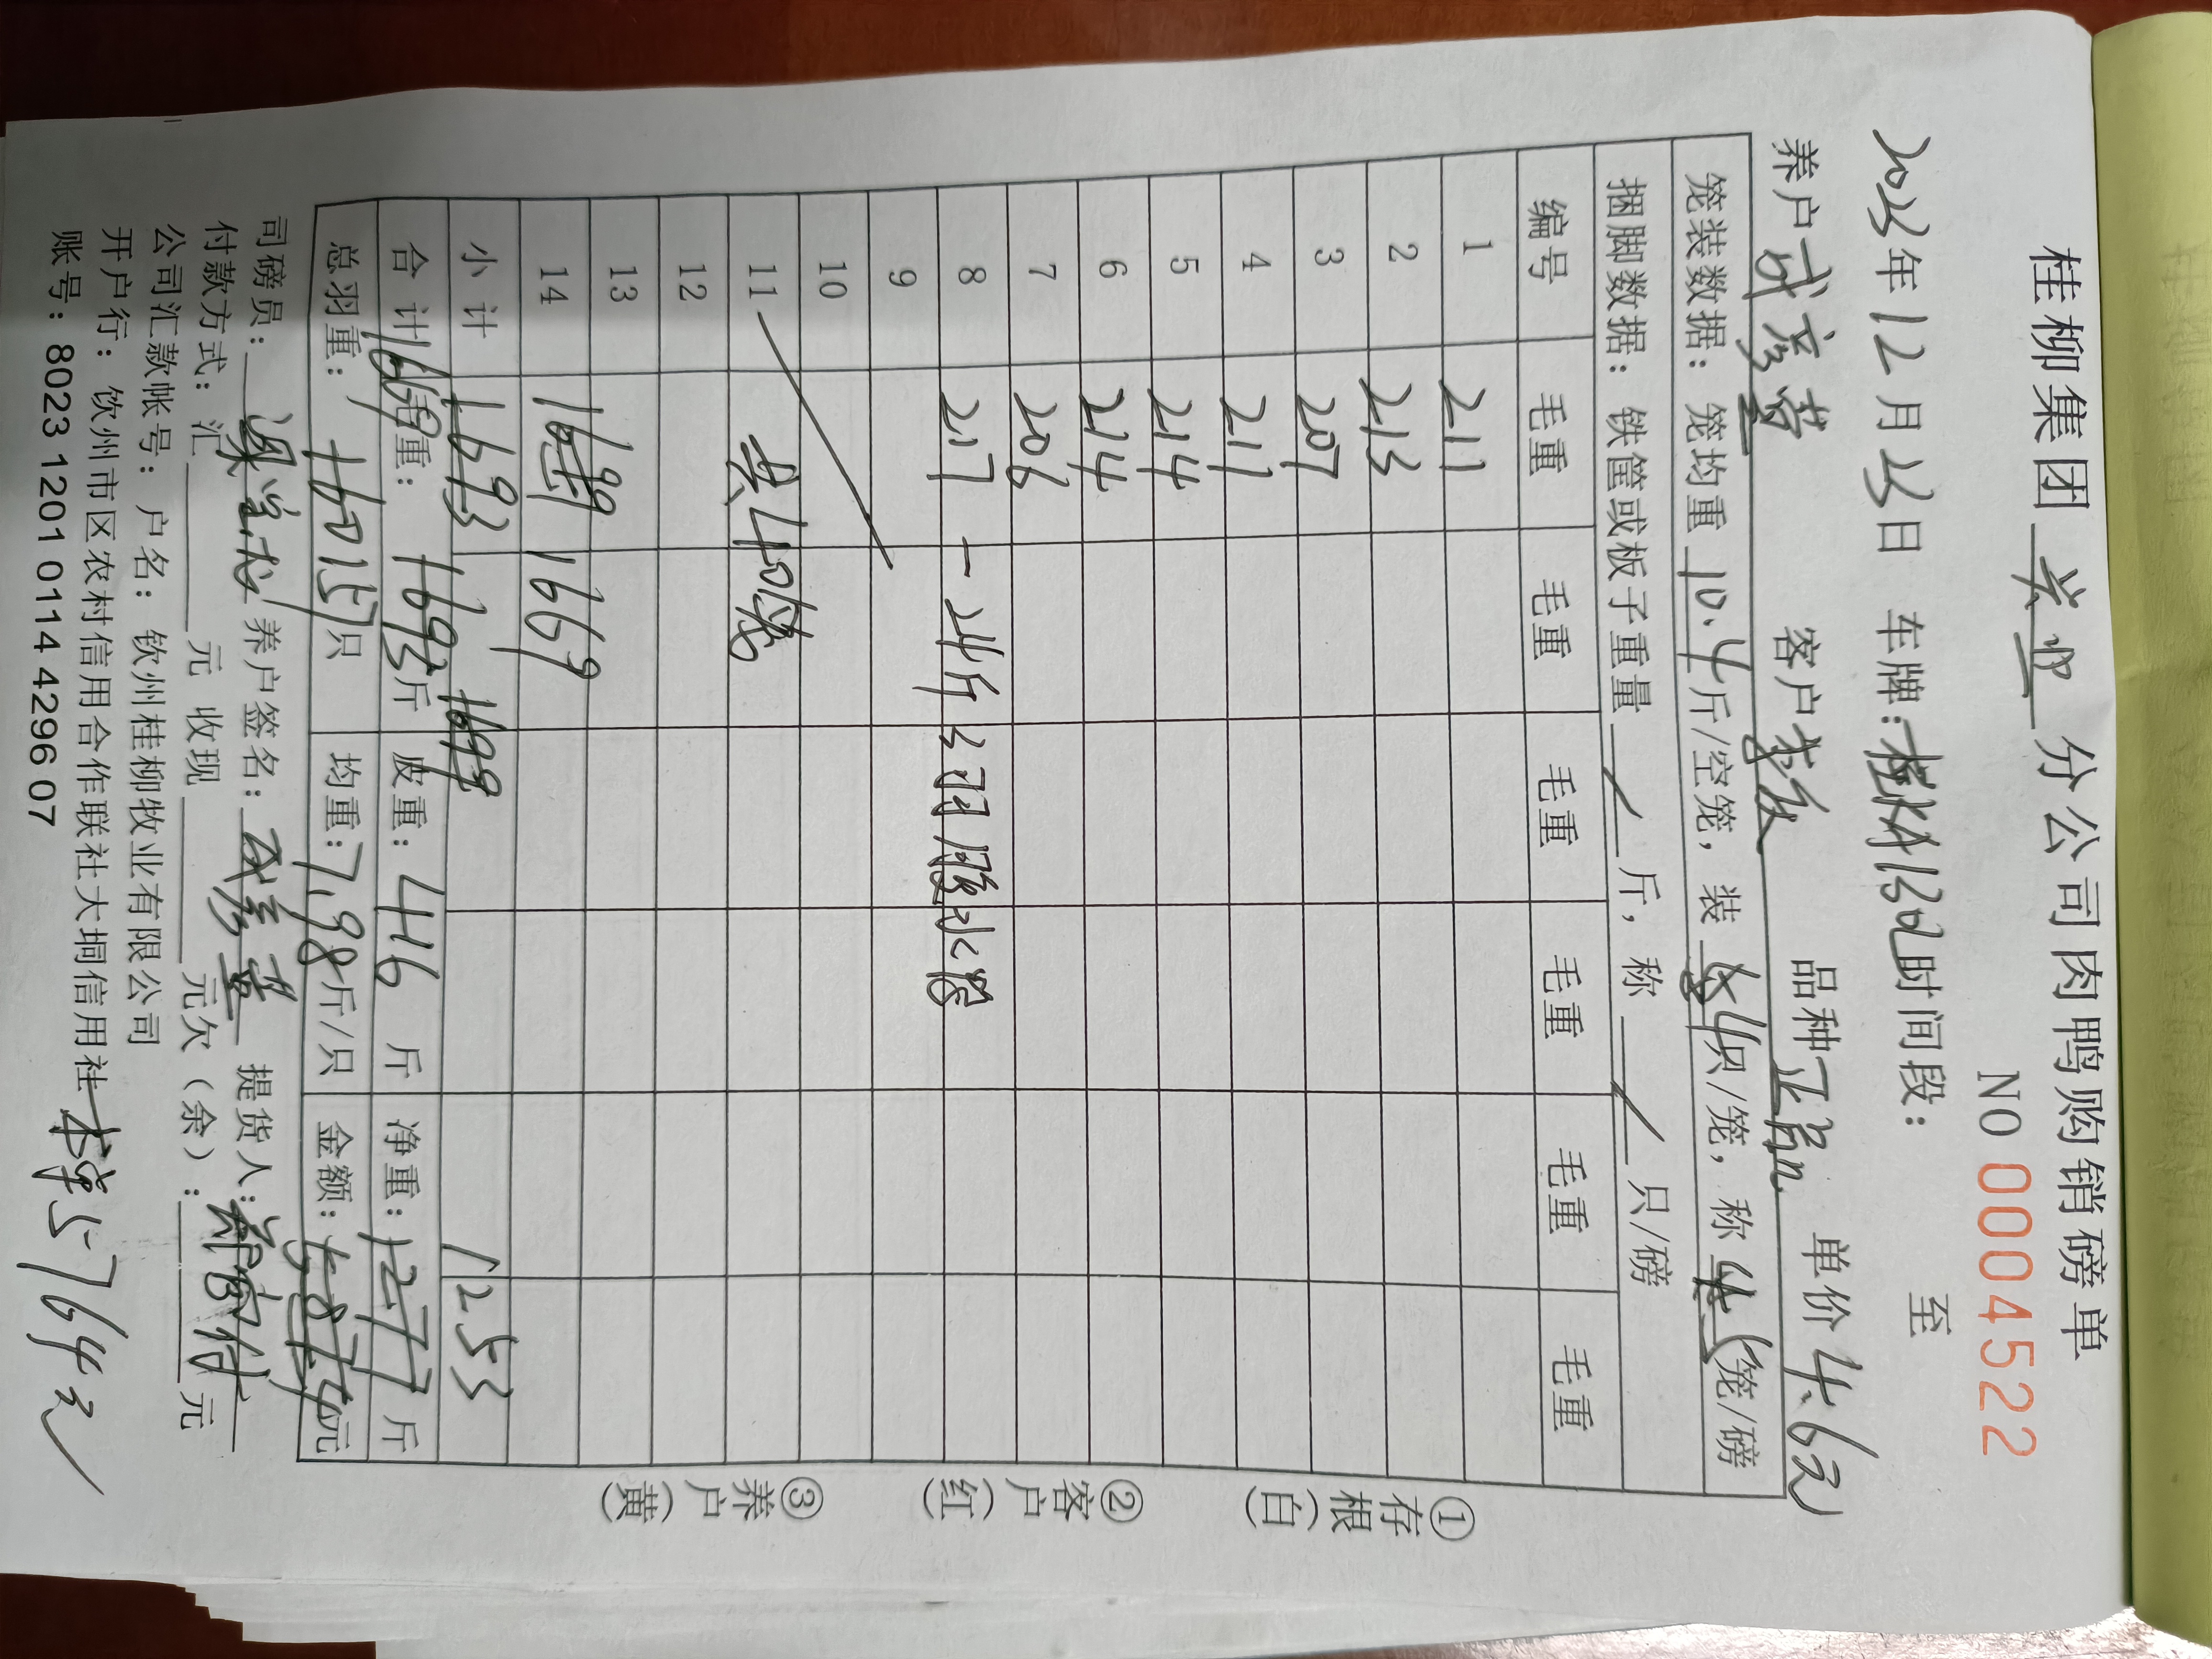 桂柳集团 兴业 分公司肉鸭购销磅单
NO 0004522
2023年12月23日 车牌: 时间段: 至
养户 客户 品种 单价 4.6元
笼装数据: 笼均重 10.4 斤/空笼, 装 4只/笼, 称 5笼/磅
捆脚数据: 铁筐或板子重量 / 斤, 称 / 只/磅
编号 毛重 毛重 毛重 毛重 毛重 毛重
1 211
2 213
3 207
4 211
5 214
6 214
7 206
8 217 一24斤 3羽 水鸭
9
10
11 共40笼
12
13
14 1699 1669
小计 1693 1699 1253
合计 1669 毛重: 1693斤 皮重: 416 斤 净重: 1277 斤
总羽重: 160 157只 均重: 7.98斤/只 金额: 5874元
司磅员: 养户签名: 提货人:
付款方式: 汇 元 收现 元欠(余): 元
公司汇款帐号: 户名: 钦州桂柳牧业有限公司
开户行: 饮州市区农村信用合作联社大垌信用社
账号: 8023 1201 0114 4296 07 5764元
①存根(白) ②客户(红) ③养户(黄)